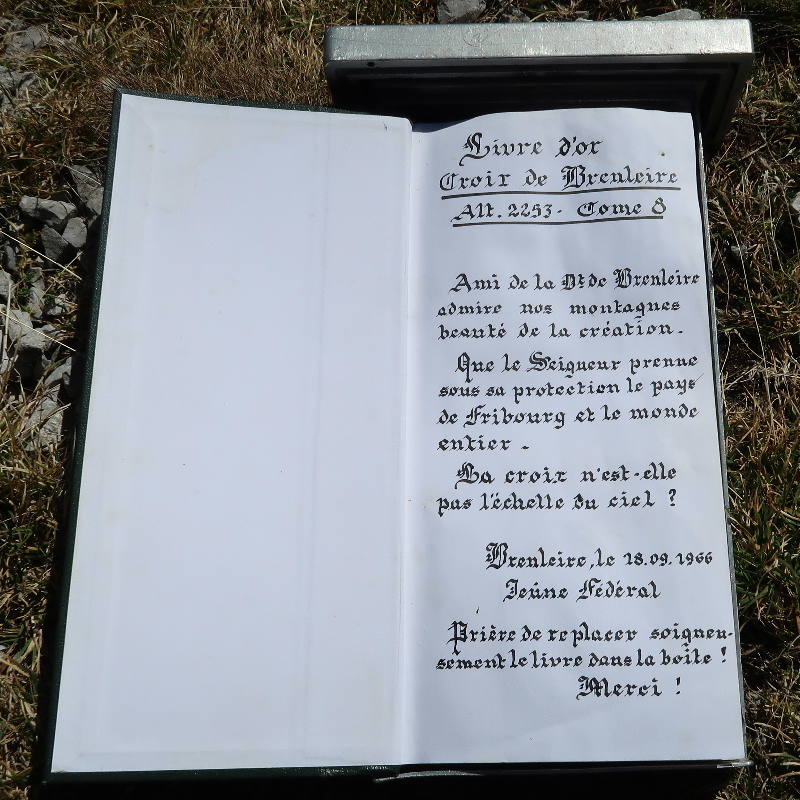 Livre d'or
Croix de Brenleire
Alt. 2253. Tome 8
Ami de la Dt de Brenleire
admire nos montagnes
beauté de la création.
Que le Seigneur prenne
sous sa protection le pays
de Fribourg et le monde
entier.
La croix n'est-elle
pas l'échelle du ciel ?
Brenleire, le 18.09.1966
Jeûne Fédéral
Prière de replacer soigneu-
sement le livre dans la boîte !
Merci !